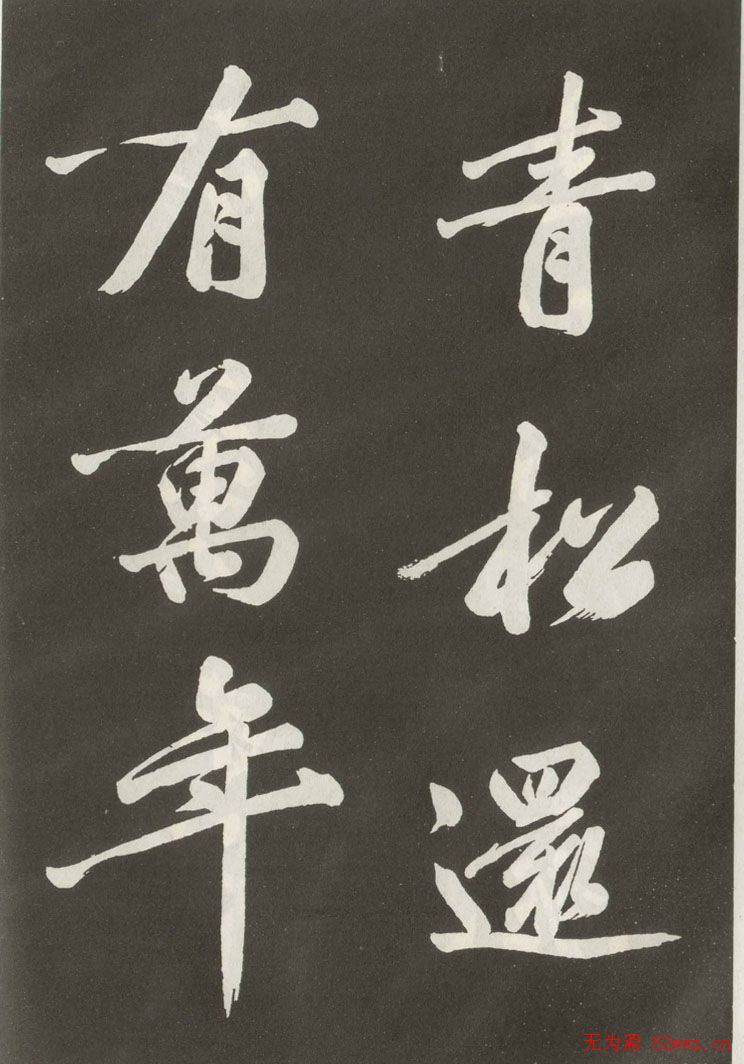 青松還
有萬年
无为斋 52wwz.cn